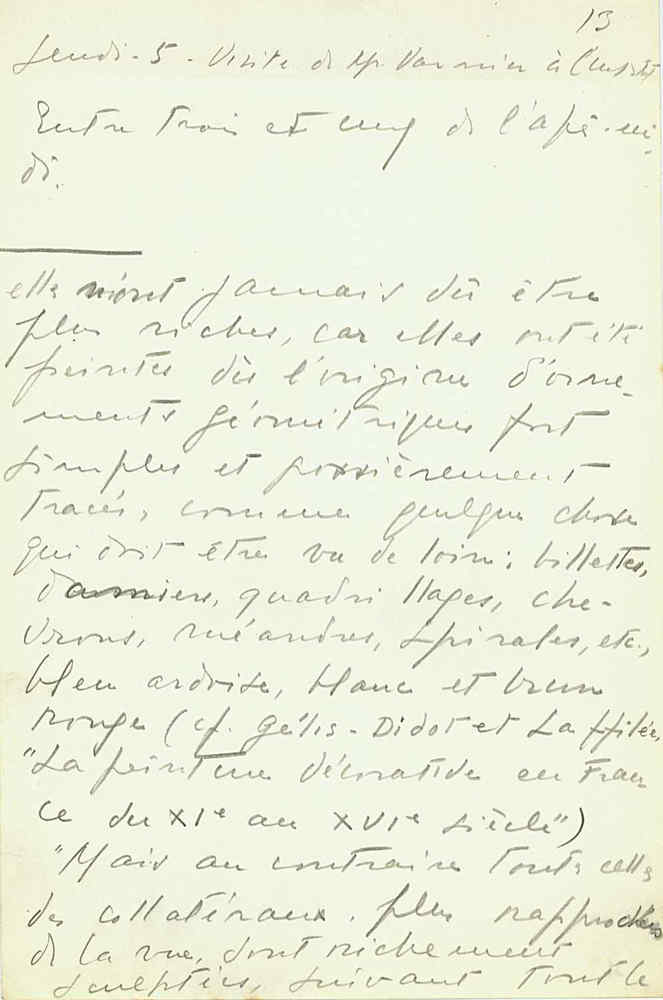 13
Jeudi - 5 - Visite de Mr Varnier à l'Instit
Entre trois et cinq de l'apè-mi-
di.
elles n'ont jamais dû être
plus riches, car elles ont été
peintes dès l'origine d'orne-
ments géométriques fort
simples et grossièrement
tracés, comme quelque chose
qui doit être vu de loin: billettes,
damiers, quadrillages, che-
vrons, méandres, spirales, etc.,
bleu ardoise, blanc et brun
rouge (cf. Gélis-Didot et Laffilée,
"La peinture décorative en Fran
ce du XIe au XVIe siècle")
"Mais au contraire toutes celles
des collatéraux, plus rapprochées
de la vue, sont richement
sculptées, suivant tout le